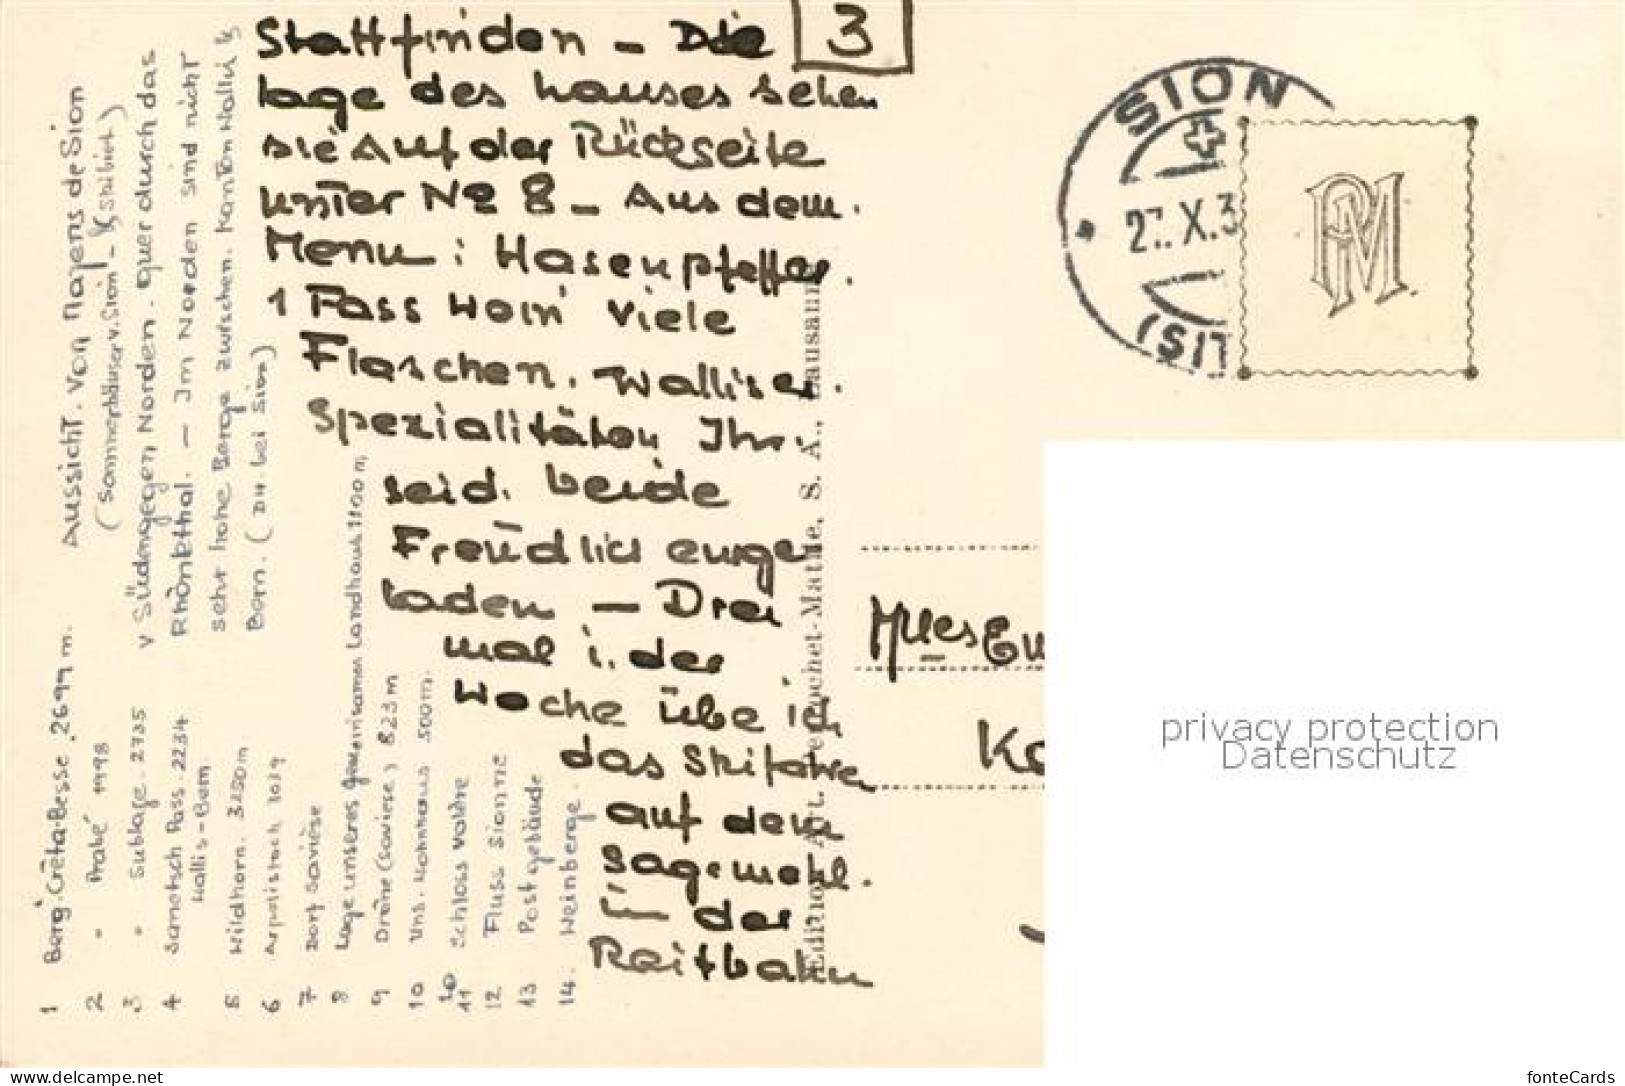 3
Stattfinden – Die
lage des hauses sehen
sie Auf der Rückseite
unter No 8 – Aus dem.
Menu : Hasenpfeffer.
1 Fass Wein viele
Flaschen. Walliser.
Spezialitäten Ihr.
seid. beide
Freudlich einge
laden – Drei
mal i. der
Woche übe ich
das Skifahren
auf dem
Sagemehl.
in der
Reitbahn
Aussicht. von Mayens de Sion
(Sommerhäuser v. Sion - & Skibiet)
v Süden gegen Norden. quer durch das
Rhônethal. – Im Norden sind nicht
sehr hohe Berge zwischen. Kanton Wallis &
Bern. (DH bei Sion)
1 Berg. Crêta-Besse 2699 m.
2 " Prabé
3 " Sublage. 2735
4 Sanetsch Pass. 2234
Wallis-Bern
5 Wildhorn. 3250m
6 Arpelistock
7 Dorf Savièse
8 Lage unseres gemeinsamen Landhaus 1100 m
9 Drône (Saviese) 823 m
10 Uns. Wohnhaus 500m.
11 Schloss Valère
12 Fluss Sionne
13 Postgebäude
14. Weinberge.
Lausanne
SION
27. X. 3
PM
Mlles
privacy protection
Datenschutz
https://www.ansichtskarten-center.de
fonteCards